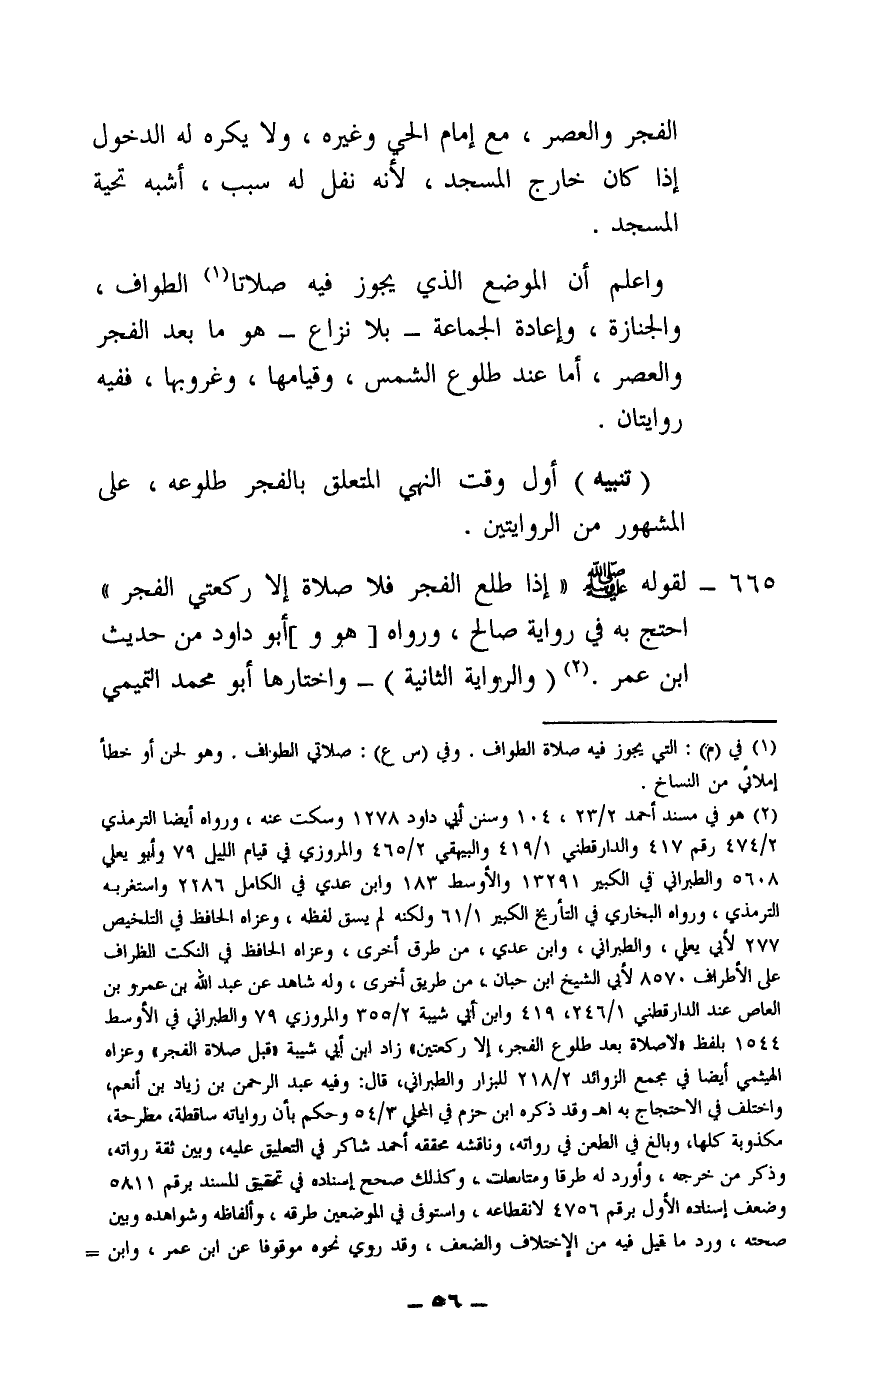 الفجر والعصر ، مع إمام الحي وغيره ، ولا يكره له الدخول
إذا كان خارج المسجد ، لأنه نفل له سبب ، أشبه تحية
المسجد .
واعلم أن الموضع الذي يجوز فيه صلاتا(١) الطواف ،
والجنازة ، وإعادة الجماعة – بلا نزاع – هو ما بعد الفجر
والعصر ، أما عند طلوع الشمس ، وقيامها ، وغروبها ، ففيه
روايتان .
( تنبيه ) أول وقت النهي المتعلق بالفجر طلوعه ، على
المشهور من الروايتين .
٦٦٥ – لقوله ﷺ « إذا طلع الفجر فلا صلاة إلا ركعتي الفجر »
احتج به في رواية صالح ، ورواه [ هو و ]أبو داود من حديث
ابن عمر .(٢) ( والرواية الثانية ) – واختارها أبو محمد التميمي
(١) في (م) : التي يجوز فيه صلاة الطواف . وفي (س ع) : صلاتي الطواف . وهو لحن أو خطأ
إملائي من النساخ .
(٢) هو في مسند أحمد ٢٣/٢ ، ١٠٤ وسنن أبي داود ١٢٧٨ وسكت عنه ، ورواه أيضا الترمذي
٤٧٤/٢ رقم ٤١٧ والدارقطني ٤١٩/١ والبيهقي ٤٦٥/٢ والمروزي في قيام الليل ٧٩ وأبو يعلي
٥٦٠٨ والطبراني في الكبير ١٣٢٩١ والأوسط ١٨٣ وابن عدي في الكامل ٢٢٨٦ واستغربه
الترمذي ، ورواه البخاري في التأريخ الكبير ٦١/١ ولكنه لم يسق لفظه ، وعزاه الحافظ في التلخيص
٢٧٧ لأبي يعلي ، والطبراني ، وابن عدي ، من طرق أخرى ، وعزاه الحافظ في النكت الظراف
على الأطراف ٨٥٧٠ لأبي الشيخ ابن حبان ، من طريق أخرى ، وله شاهد عن عبد الله بن عمرو بن
العاص عند الدارقطني ٢٤٦/١، ٤١٩ وابن أبي شيبة ٣٥٥/٢ والمروزي ٧٩ والطبراني في الأوسط
١٥٤٤ بلفظ «لاصلاة بعد طلوع الفجر، إلا ركعتين» زاد ابن أبي شيبة «قبل صلاة الفجر» وعزاه
الهيثمي أيضا في مجمع الزوائد ٢١٨/٢ للبزار والطبراني، قال: وفيه عبد الرحمن بن زياد بن أنعم،
واختلف في الاحتجاج به اهـ وقد ذكره ابن حزم في المحلي ٥٤/٣ وحكم بأن رواياته ساقطة، مطرحة،
مكذوبة كلها، وبالغ في الطعن في رواته، وناقشه محققه أحمد شاكر في التعليق عليه، وبين ثقة رواته،
وذكر من خرجه ، وأورد له طرقا ومتابعات ، وكذلك صحح إسناده في تحقيق المسند برقم ٥٨١١
وضعف إسناده الأول برقم ٤٧٥٦ لانقطاعه ، واستوفى في الموضعين طرقه ، وألفاظه وشواهده وبين
صحته ، ورد ما قيل فيه من الإختلاف والضعف ، وقد روي نحوه موقوفا عن ابن عمر ، وابن =
– ٥٦ –